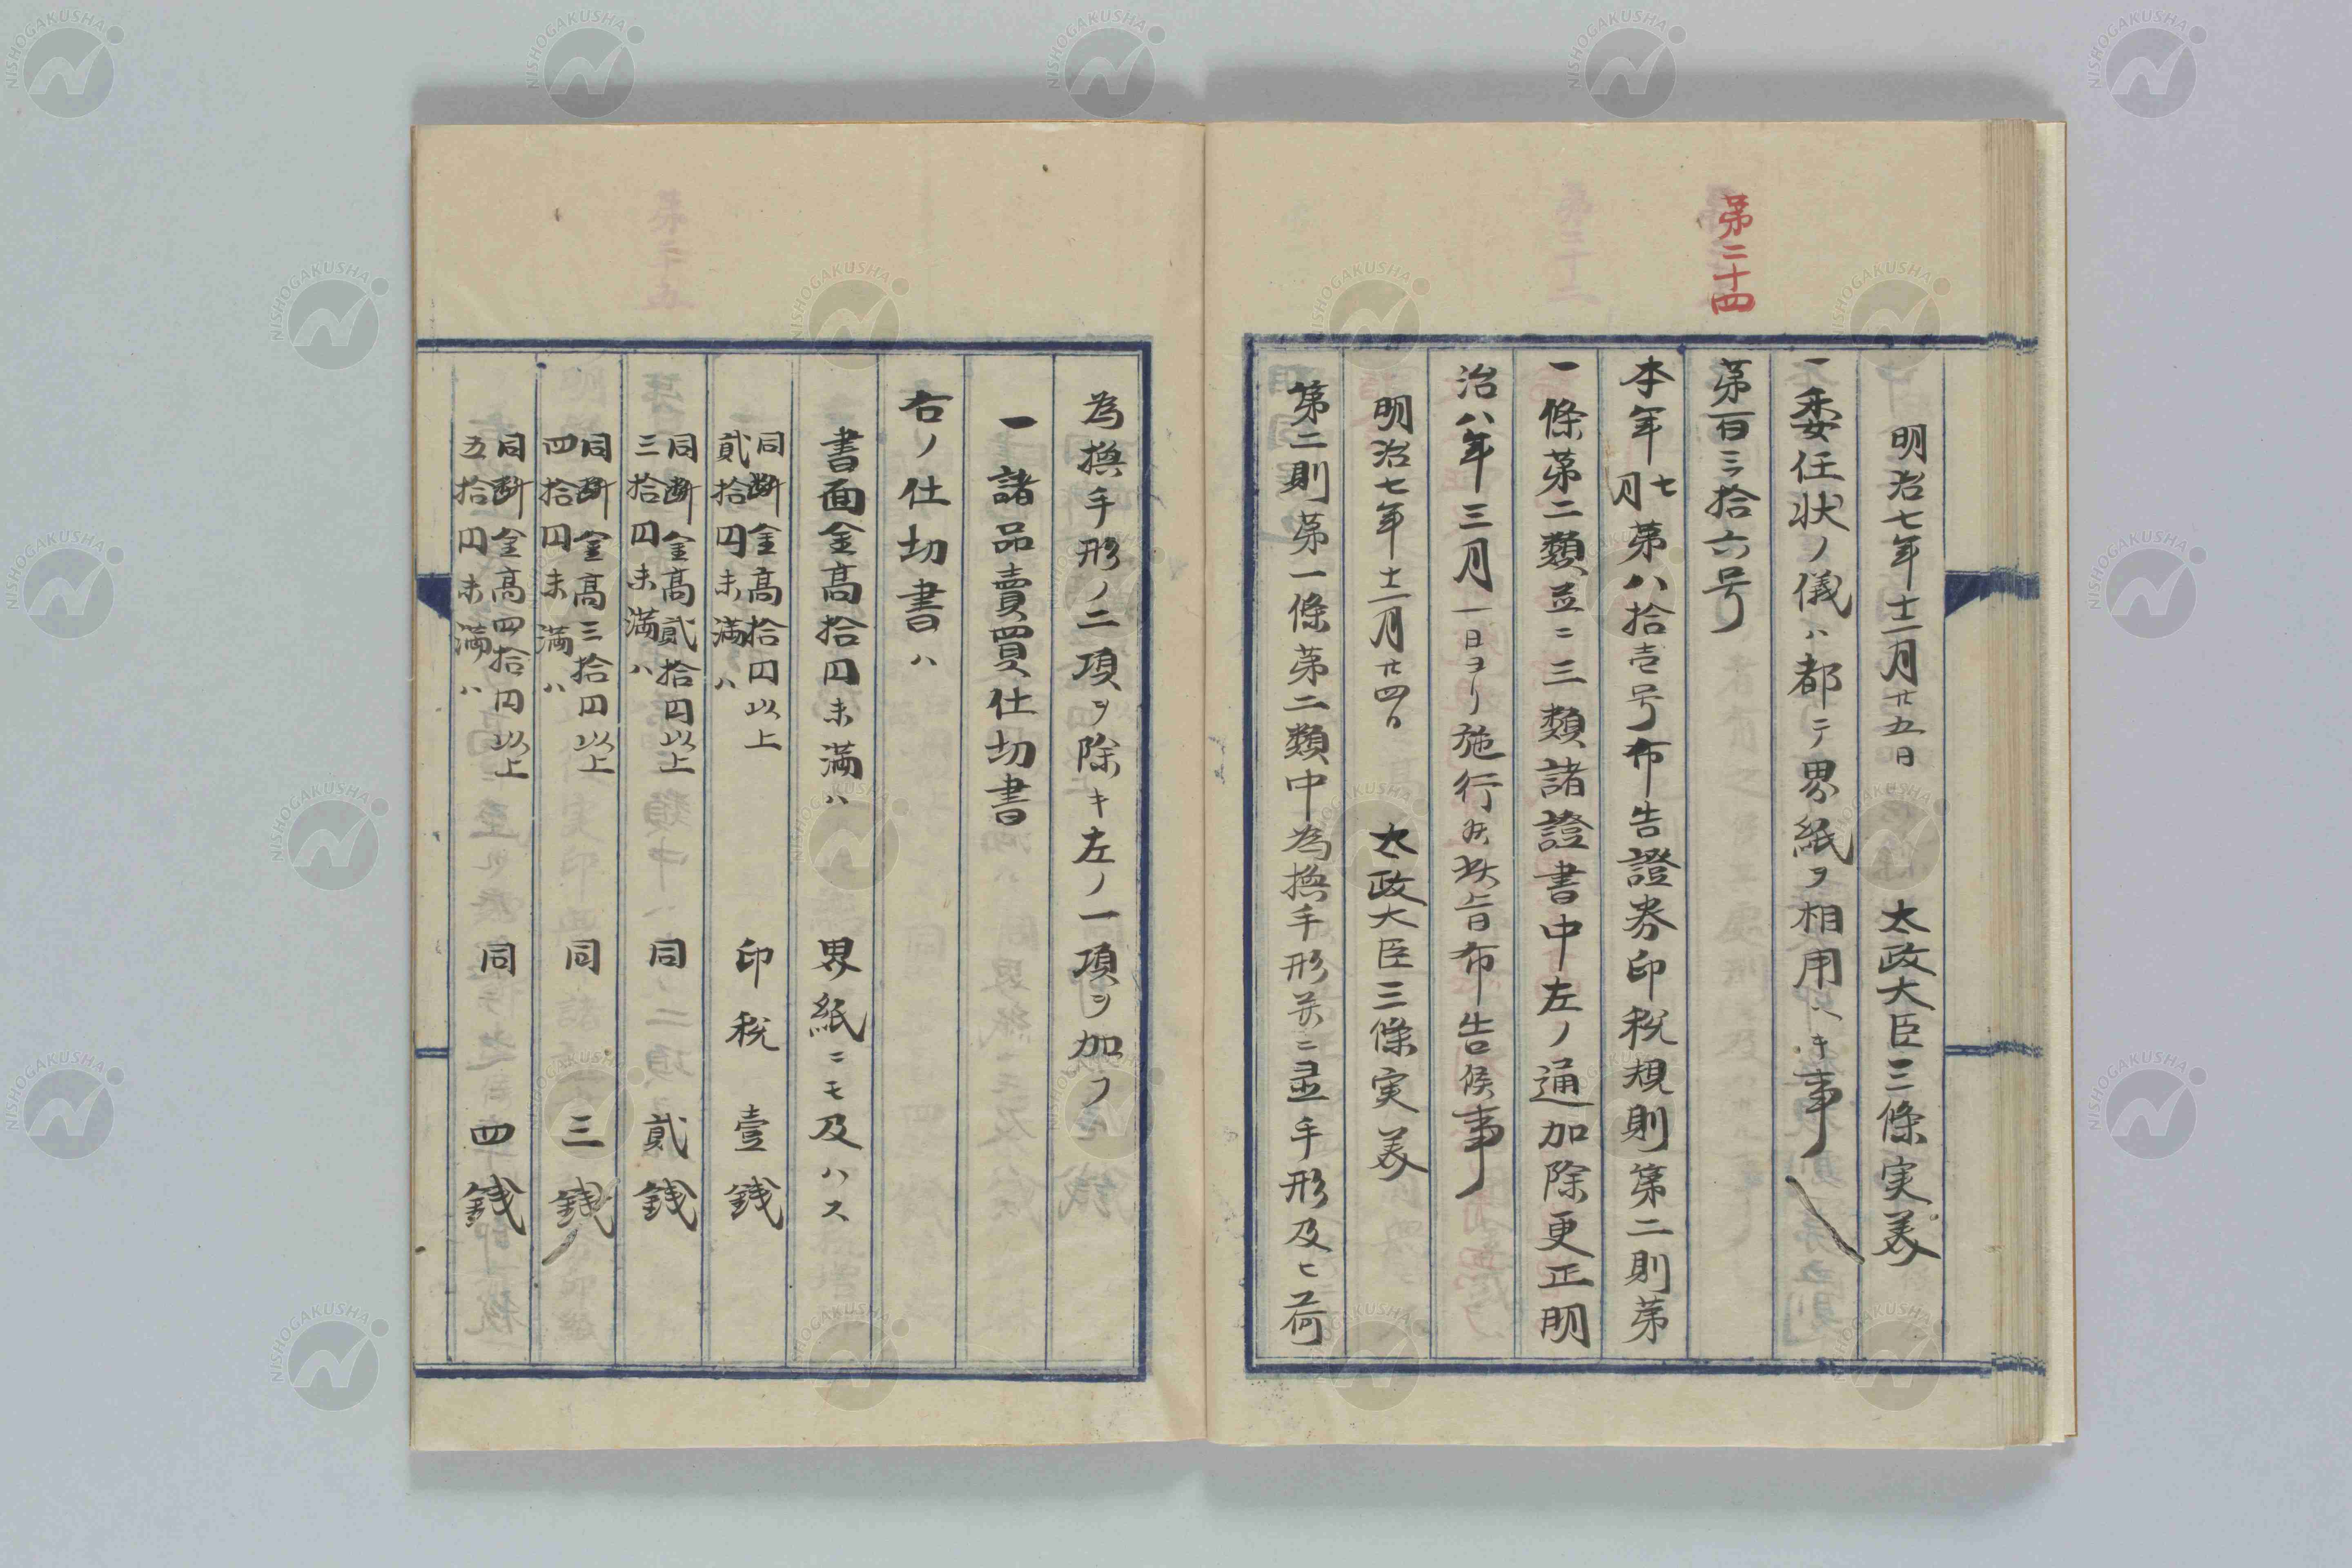 第二十四
明治七年十二月廿五日 太政大臣三條実美
一委任状ノ儀ハ都テ界紙ヲ相用ヘキ事
第百三拾六号
本年七月第八拾壱号布告證券印税規則第二則第
一條第二類並ニ三類諸證書中左ノ通加除更正明
治八年三月一日ヨリ施行候條此旨布告候事
明治七年十二月廿四日 太政大臣三條実美
第二則第一條第二類中為換手形並ニ並手形及ヒ荷
為換手形ノ二項ヲ除キ左ノ一項ヲ加フ
一諸品賣買仕切書
右ノ仕切書ハ
書面金高拾円未満ハ 界紙ニモ及ハス
同断金高拾円以上
貳拾円未満ハ 印税 壹銭
同断金高貳拾円以上
三拾円未満ハ 同 貳銭
同断金高三拾円以上
四拾円未満ハ 同 三銭
同断金高四拾円以上
五拾円未満ハ 同 四銭
NISHOGAKUSHA